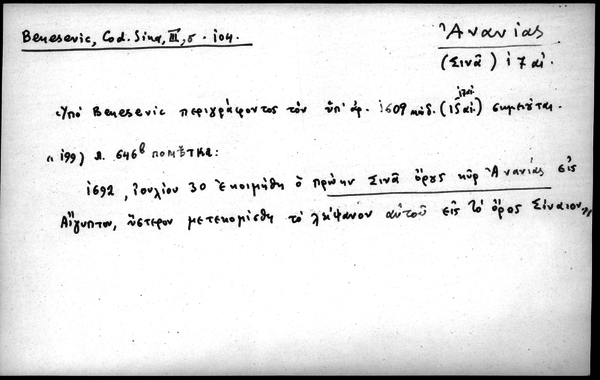 Benesevic, Cod. Sina, III, σ. 104.
Ἀνανίας
(Σινᾶ) 17 αἰ.
Ὑπὸ Benesevic περιγράφοντος τὸν ὑπ' ἀρ. 1609 κώδ. (15 αἰ.) σημειοῦται.
17 αἰ
"199) л. 646β помѣтка:
1692, Ἰουλίου 30 ἐκοιμήθη ὁ πρώην Σινᾶ ὄρους κῦρ Ἀνανίας εἰς
Αἴγυπτον, ὕστερον μετεκομίσθη τὸ λείψανον αὐτοῦ εἰς τὸ ὄρος Σίναιον"